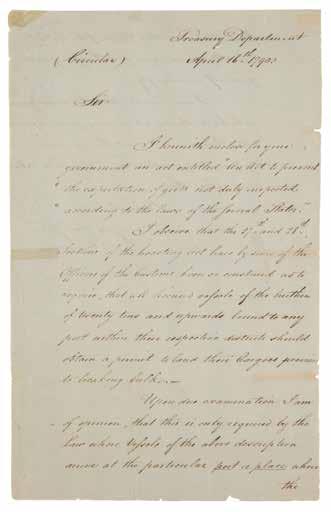 Treasury Department
(Circular) April 16th 1792
Sir
I herewith inclose for your
government an act entitled "An Act to prevent
"the exportation of goods not duly inspected
"according to the laws of the several States."
I observe that the 27th and 28th
Sections of the Coasting act have by some of the
Officers of the Customs been so construed as to
require, that all licenced vessels of the burthen
of twenty tons and upwards bound to any
port within their respective districts should
obtain a permit to land their Cargoes previous
to breaking bulk.
Upon due examination I am
of opinion, that this is only required by the
law where Vessels of the above description
arrive at the particular port or place where
the